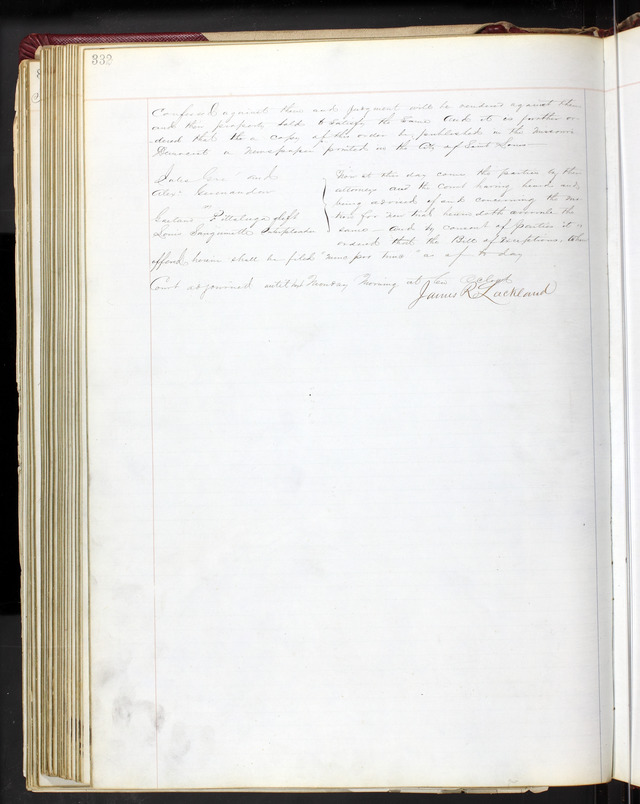 332
Confessed against them and Judgment will be rendered against them
and their property sold to satisfy the same And it is further or-
dered that the a copy of this order be published in the Missouri
Democrat a newspaper printed in the City of Saint Louis
Jules and Now at this day come the parties by their
Alex attorneys and the Court having heard and
vs being advised of and concerning the mo-
Pittaluga deft tion for new trial herein doth overrule the
Louis Interpleader same - And by consent of parties it is
ordered that the Bill of Exceptions
herein shall be filed "nunc pro tunc" as of to day
Court adjourned until Monday Morning at ten oclock
James R Lackland